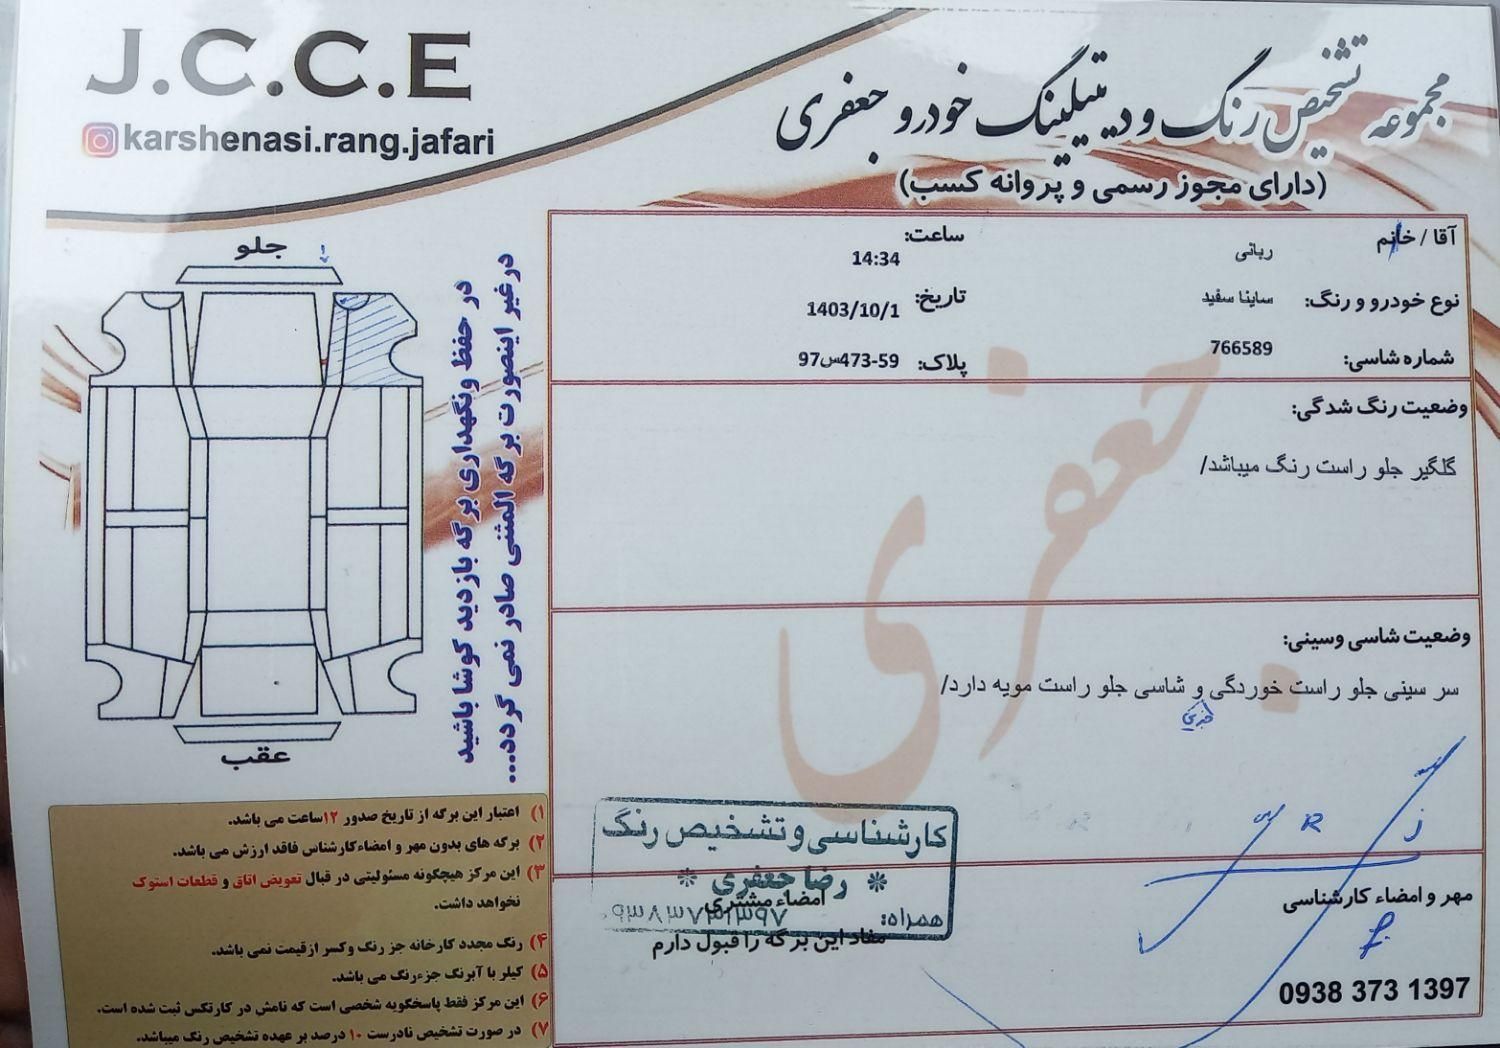 J.C.C.E
karshenasi.rang.jafari
مجموعه تشخیص رنگ و دیتیلینگ خودرو جعفری
(دارای مجوز رسمی و پروانه کسب)
آقا / خانم ربانی
ساعت: 14:34
نوع خودرو و رنگ: ساینا سفید
تاریخ: 1403/10/1
شماره شاسی: 766589
پلاک: 59-473س97
وضعیت رنگ شدگی:
گلگیر جلو راست رنگ میباشد/
وضعیت شاسی وسینی:
سر سینی جلو راست خوردگی و شاسی جلو راست مویه دارد/
جعفری
جلو
عقب
در حفظ ونگهداری برگه بازدید کوشا باشید
درغیر اینصورت برگه المثنی صادر نمی گردد...
۱) اعتبار این برگه از تاریخ صدور ۱۲ساعت می باشد.
۲) برگه های بدون مهر و امضاءکارشناس فاقد ارزش می باشد.
۳) این مرکز هیچگونه مسئولیتی در قبال تعویض اتاق و قطعات استوک
نخواهد داشت.
۴) رنگ مجدد کارخانه جز رنگ وکسر ازقیمت نمی باشد.
۵) کیلر با آبرنگ جزءرنگ می باشد.
۶) این مرکز فقط پاسخگویه شخصی است که نامش در کارتکس ثبت شده است.
۷) در صورت تشخیص نادرست ۱۰ درصد بر عهده تشخیص رنگ میباشد.
کارشناسی و تشخیص رنگ
* رضا جعفری *
همراه: ۰۹۳۸۳۷۳۱۳۹۷
امضاء مشتری
مفاد این برگه را قبول دارم
مهر و امضاء کارشناسی
0938 373 1397